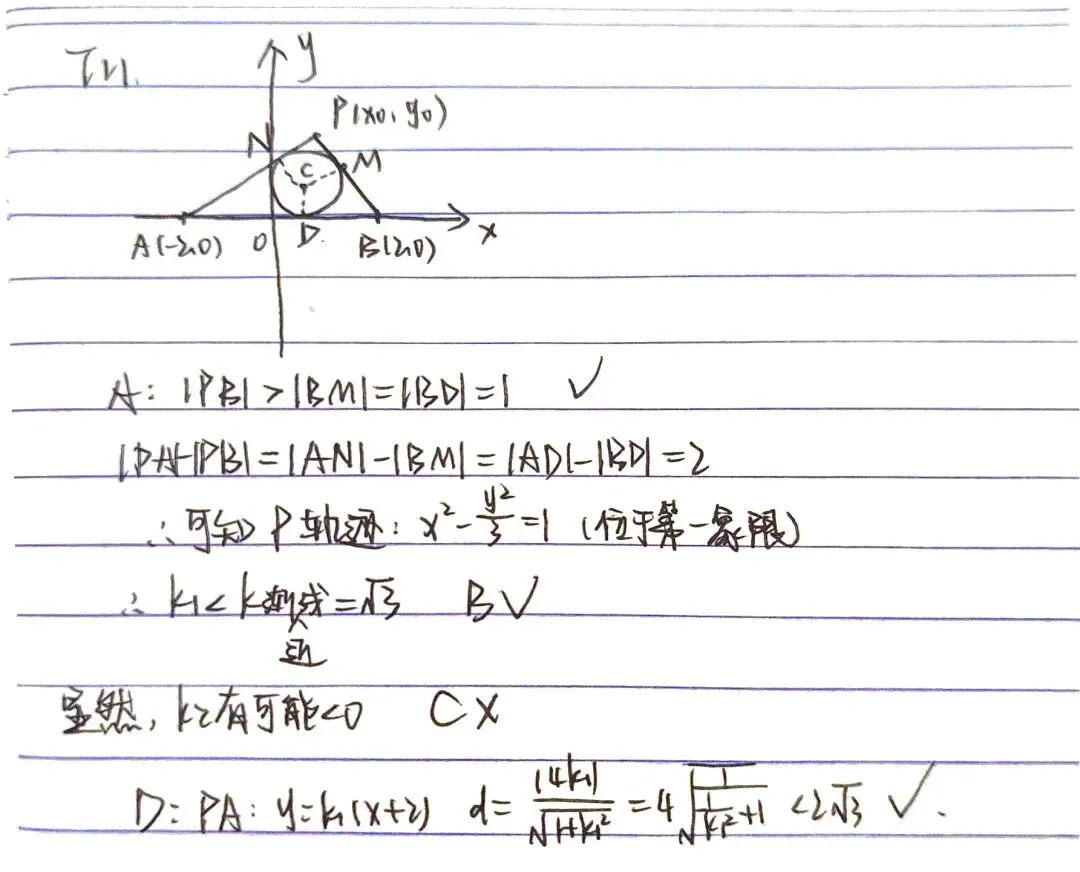 T11.
y
P(x0, y0)
N
M
C
A(-2,0) O D B(2,0) x
A: |PB|>|BM|=|BD|=1 ✓
|PA|-|PB|=|AN|-|BM|=|AD|-|BD|=2
∴可知P轨迹: x²-y²/3=1 (位于第一象限)
∴ k₁<k渐近线=√3 B✓
显然, k₂有可能<0 C×
D: PA: y=k₁(x+2) d=|4k₁|/√(1+k₁²)=4√(1/(1/k₁²+1))<2√3 ✓.